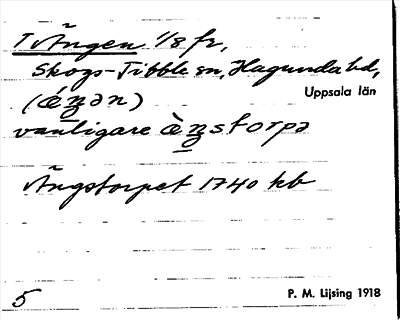 T Ängen 1/8 fr,
Skogs-Tibble sn, Hagunda hd,
Uppsala län
(ǽŋən)
vanligare ὲŋstorpə
Ängstorpet 1740 kb
5
P. M. Lijsing 1918